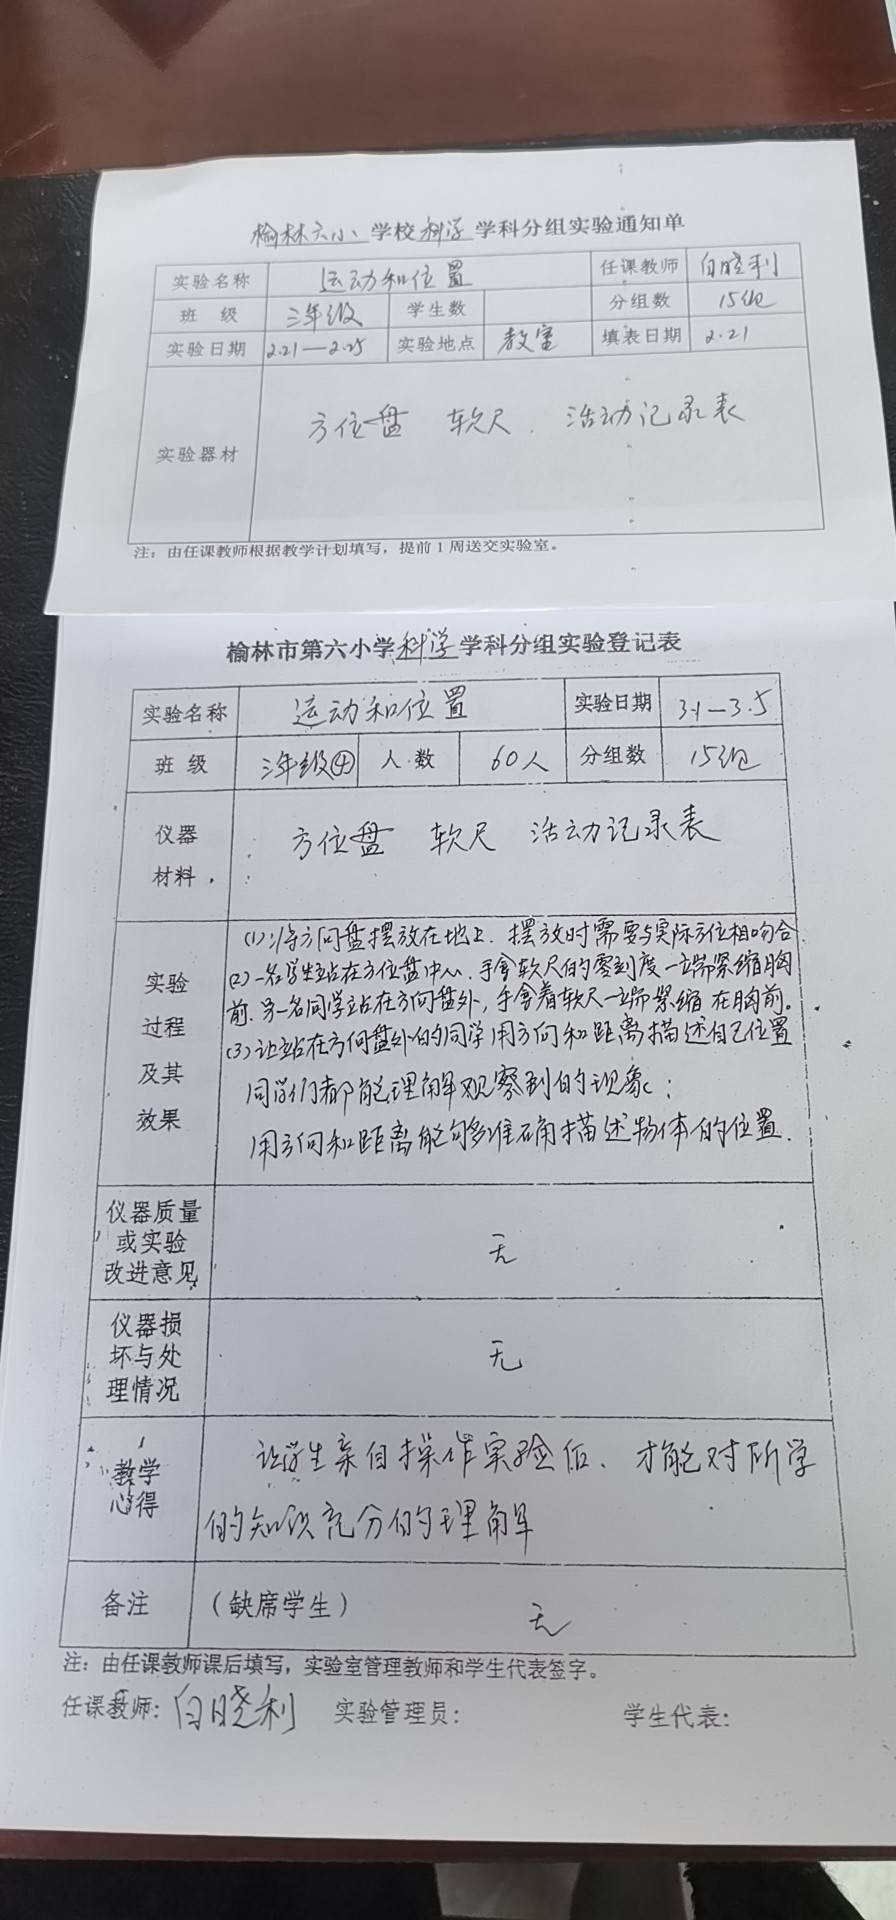 榆林六小 学校 科学 学科分组实验通知单
实验名称 运动和位置 任课教师 白晓利
班 级 三年级 学生数 分组数 15组
实验日期 2.21—2.25 实验地点 教室 填表日期 2.21
实验器材 方位盘 软尺 . 活动记录表
注：由任课教师根据教学计划填写，提前1周送交实验室。
榆林市第六小学科学学科分组实验登记表
实验名称 运动和位置 实验日期 3.1—3.5
班 级 三年级④ 人 数 60人 分组数 15组
仪器
材料
方位盘 软尺 活动记录表
实验
过程
及其
效果
(1):将方向盘摆放在地上. 摆放时需要与实际方位相吻合
(2)一名学生站在方位盘中心. 手拿软尺的零刻度一端紧缩胸
前. 另一名同学站在方向盘外, 手拿着软尺一端紧缩 在胸前。
(3)让站在方向盘外的同学用方向和距离描述自己位置
同学们都能理解观察到的现象;
用方向和距离能够准确描述物体的位置.
仪器质量
或实验
改进意见
无
仪器损
坏与处
理情况
无
教学
心得
让学生亲自操作实验后、才能对所学
的知识充分的理解
备注 （缺席学生） 无
注：由任课教师课后填写，实验室管理教师和学生代表签字。
任课教师: 白晓利 实验管理员: 学生代表: